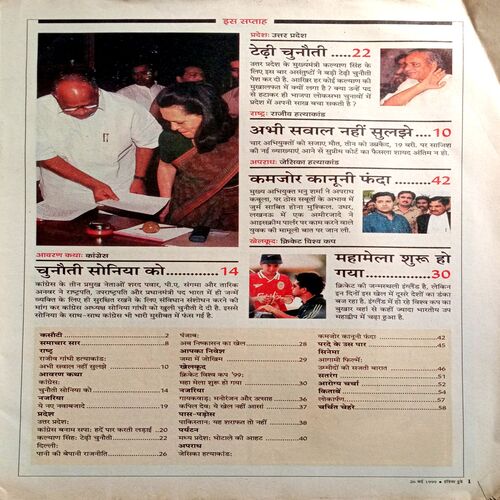 इस सप्ताह
प्रदेश: उत्तर प्रदेश
टेढ़ी चुनौती .....22
उत्तर प्रदेश के मुख्यमंत्री कल्याण सिंह के
लिए इस बार असंतुष्टों ने बड़ी टेढ़ी चुनौती
पेश कर दी है. आखिर हर कोई कल्याण की
मुखालफत में क्यों लगा है? क्या उन्हें पद
से हटाकर ही भाजपा लोकसभा चुनावों में
प्रदेश में अपनी साख बचा सकती है?
राष्ट्र: राजीव हत्याकांड
अभी सवाल नहीं सुलझे ....10
चार अभियुक्तों को सजाए मौत, तीन को उम्रकैद, 19 बरी. पर साजिश
की नई व्याख्याएं आने से सुप्रीम कोर्ट का फैसला शायद अंतिम न हो.
अपराध: जेसिका हत्याकांड
कमजोर कानूनी फंदा .........42
मुख्य अभियुक्त मनु शर्मा ने अपराध
कबूला, पर ठोस सबूतों के अभाव में
जुर्म साबित होना मुश्किल. उधर,
लखनऊ में एक अमीरजादे ने
आइसक्रीम पार्लर पर काम करने वाले
युवक को मामूली बात पर जान ली.
खेलकूद: क्रिकेट विश्व कप
महामेला शुरू हो
गया ...............30
क्रिकेट की जन्मस्थली इंग्लैंड है, लेकिन
इन दिनों इस खेल में दूसरे देशों का डंका
बज रहा है. इंग्लैंड में हो रहे विश्व कप का
बुखार वहां से कहीं ज्यादा भारतीय उप
महाद्वीप में चढ़ा हुआ है.
आवरण कथा: कांग्रेस
चुनौती सोनिया को...........14
कांग्रेस के तीन प्रमुख नेताओं शरद पवार, पी.ए. संगमा और तारिक
अनवर ने राष्ट्रपति, उपराष्ट्रपति और प्रधानमंत्री पद भारत में ही जन्मे
व्यक्ति के लिए ही सुरक्षित रखने के लिए संविधान संशोधन करने की
मांग कर कांग्रेस अध्यक्ष सोनिया गांधी को खुली चुनौती दे दी है. इससे
सोनिया के साथ-साथ कांग्रेस भी भारी मुसीबत में फंस गई है.
कसौटी ...2
समाचार सार ...8
राष्ट्र
राजीव गांधी हत्याकांड:
अभी सवाल नहीं सुलझे ...10
आवरण कथा
कांग्रेस:
चुनौती सोनिया को ...14
नजरिया
ये नए नवाबजादे ...19
प्रदेश
उत्तर प्रदेश:
कांग्रेस बनाम सपा: हदें पार करती लड़ाई ..20
कल्याण सिंह: टेढ़ी चुनौती ...22
दिल्ली:
पानी की बेपानी राजनीति ...26
पंजाब:
अब निष्कासन का खेल ...28
आपका निवेश
जमा में जोखिम ...29
खेलकूद
क्रिकेट विश्व कप '99:
महा मेला शुरू हो गया ...30
नजरिया
गायकवाड़: मनोरंजन और उत्साह ...36
कपिल देव: ये खेल नहीं आसां ...37
पास-पड़ोस
पाकिस्तान: यह शराफत तो नहीं ...38
पर्यटन
मध्य प्रदेश: भोटाले की आहट ...40
अपराध
जेसिका हत्याकांड:
कमजोर कानूनी फंदा ...42
परदे के उस पार ...45
सिनेमा
आगामी फिल्में:
उम्मीदों की सजती बारात ...46
सतरंग ...51
आरोग्य चर्चा ...52
किताबें ...54
लोकार्पण ...57
चर्चित चेहरे ...58
26 मई 1999 ● इंडिया टुडे 1